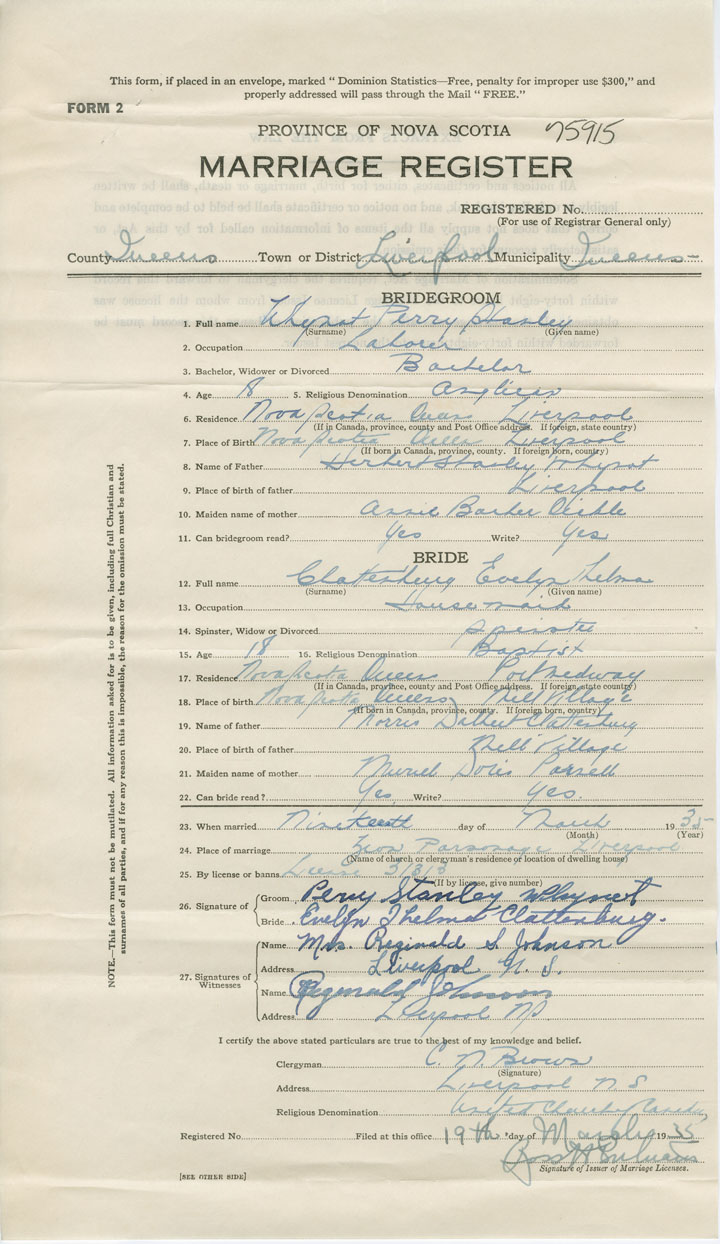 This form, if placed in an envelope, marked “ Dominion Statistics—Free, penalty for improper use $300,” and
properly addressed will pass through the Mail “ FREE.”
FORM 2
PROVINCE OF NOVA SCOTIA 75915
MARRIAGE REGISTER
REGISTERED No.
(For use of Registrar General only)
County Queens Town or District Liverpool Municipality Queens
BRIDEGROOM
1. Full name Whynot Perry Stanley
(Surname) (Given name)
2. Occupation Laborer
3. Bachelor, Widower or Divorced Bachelor
4. Age 5. Religious Denomination Anglican
6. Residence Nova Scotia Queens Liverpool
(If in Canada, province, county and Post Office address. If foreign, state country)
7. Place of Birth Nova Scotia Queens Liverpool
(If born in Canada, province, county. If foreign born, country)
8. Name of Father Herbert Stanley Whynot
9. Place of birth of father Liverpool
10. Maiden name of mother Annie
11. Can bridegroom read? Yes Write? Yes
BRIDE
12. Full name Clattenburg Evelyn Thelma
(Surname) (Given name)
13. Occupation Housemaid
14. Spinster, Widow or Divorced Spinster
15. Age 18 16. Religious Denomination Baptist
17. Residence Nova Scotia Queens Port Medway
(If in Canada, province, county and Post Office address. If foreign, state country)
18. Place of birth Nova Scotia Queens Mill Village
(If born in Canada, province, county. If foreign born, country)
19. Name of father Morris Clattenburg
20. Place of birth of father Mill Village
21. Maiden name of mother Muriel Doris
22. Can bride read? Yes Write? Yes.
23. When married Nineteenth day of March 1935
(Month) (Year)
24. Place of marriage Zion Parsonage Liverpool
(Name of church or clergyman's residence or location of dwelling house)
25. By license or banns License
(If by license, give number)
26. Signature of Groom Perry Stanley Whynot
Bride Evelyn Thelma Clattenburg.
27. Signatures of Witnesses Name Mrs. Reginald S. Johnson
Address Liverpool N. S.
Name Reginald Johnson
Address Liverpool NS
I certify the above stated particulars are true to the best of my knowledge and belief.
Clergyman C. N. Brown
(Signature)
Address Liverpool N S
Religious Denomination United Church
Registered No. Filed at this office 19th day of March 1935
Signature of Issuer of Marriage Licenses.
[SEE OTHER SIDE]
NOTE.—This form must not be mutilated. All information asked for is to be given, including full Christian and
surnames of all parties, and if for any reason this is impossible, the reason for the omission must be stated.